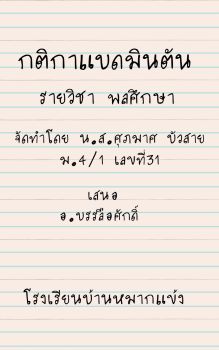 กติกาแบดมินตัน
รายวิชา พลศึกษา
จัดทำโดย น.ส.ศุภมาศ บัวสาย
ม.4/1 เลขที่31
เสนอ
อ.บรรลือศักดิ์
โรงเรียนบ้านหมากแข้ง